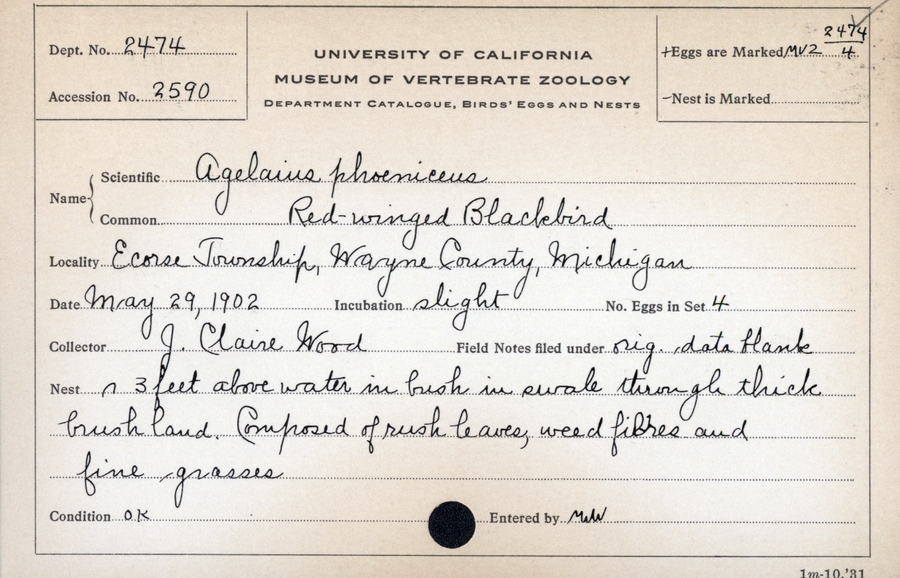 Dept. No. 2474
Accession No. 2590
UNIVERSITY OF CALIFORNIA
MUSEUM OF VERTEBRATE ZOOLOGY
DEPARTMENT CATALOGUE, BIRDS' EGGS AND NESTS
+Eggs are Marked MVZ 2474/4
-Nest is Marked
Name { Scientific Agelaius phoeniceus
Common Red-winged Blackbird
Locality Ecorse Township, Wayne County, Michigan
Date May 29, 1902 Incubation slight No. Eggs in Set 4
Collector J. Claire Wood Field Notes filed under orig. data blank
Nest 3 feet above water in bush in swale through thick
brush land. Composed of rush leaves, weed fibres and
fine grasses
Condition OK Entered by
1m-10,'31